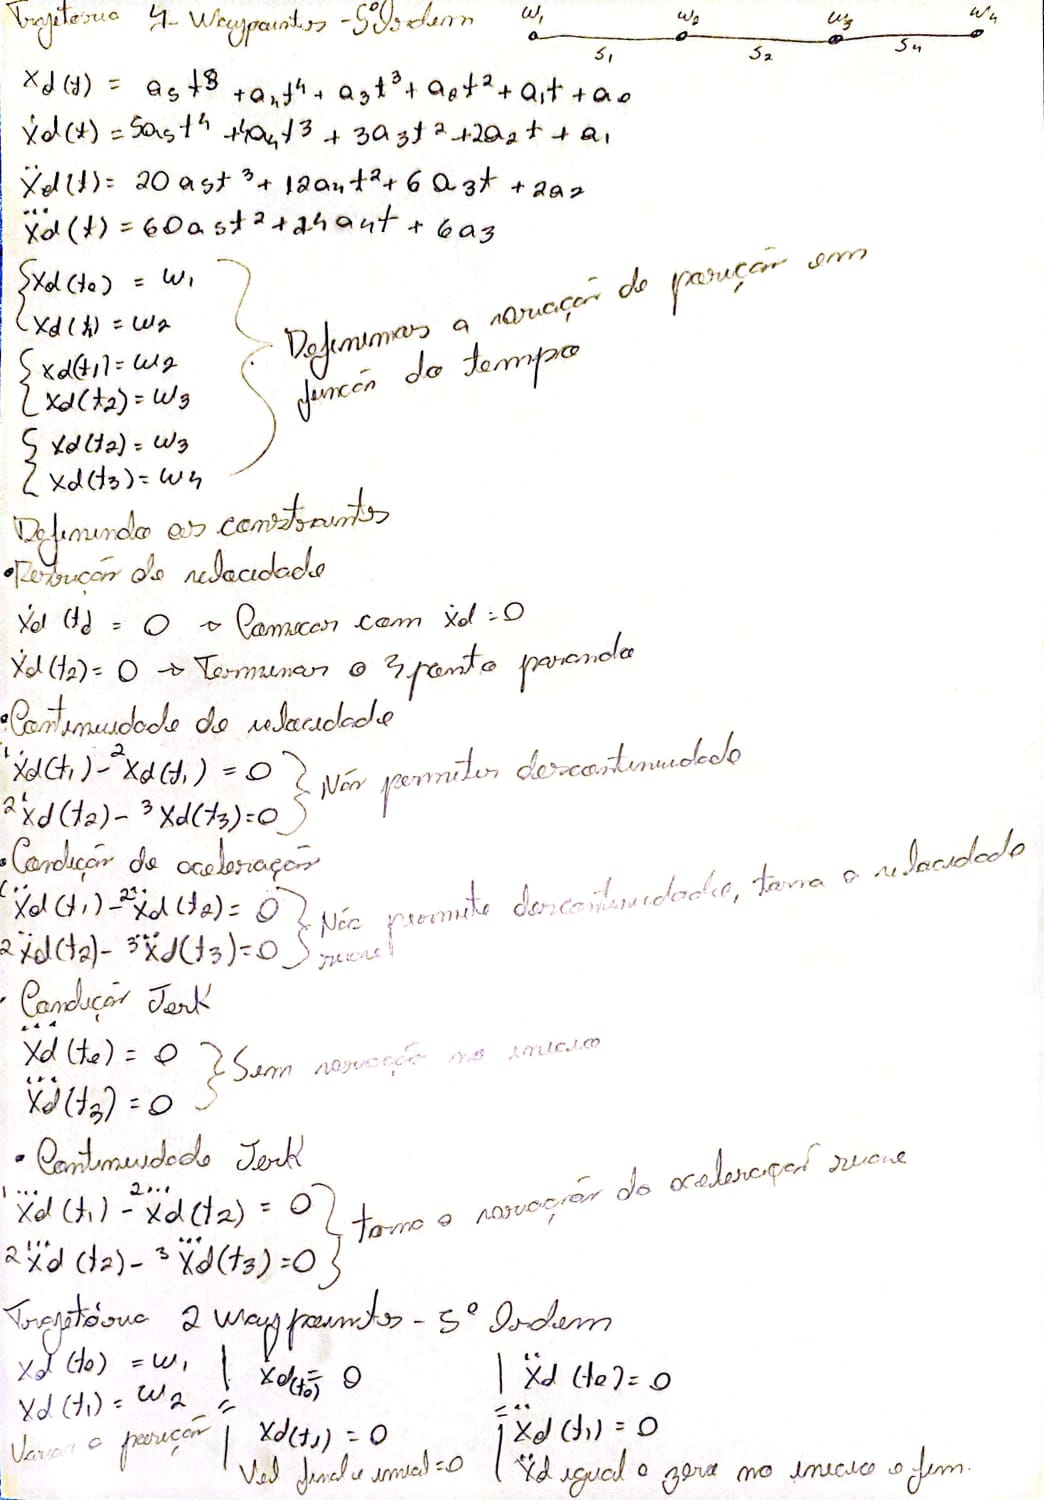 Trajetória 4 Waypoints - 5º Ordem
w₁ w₂ w₃ w₄
S₁ S₂ S₄
xd(t) = a₅t⁸ + a₄t⁴ + a₃t³ + a₂t² + a₁t + a₀
ẋd(t) = 5a₅t⁴ + 4a₄t³ + 3a₃t² + 2a₂t + a₁
ẍd(t) = 20a₅t³ + 12a₄t² + 6a₃t + 2a₂
x⃛d(t) = 60a₅t² + 24a₄t + 6a₃
{xd(t₀) = w₁
xd(t₁) = w₂
{xd(t₁) = w₂
xd(t₂) = w₃
{xd(t₂) = w₃
xd(t₃) = w₄
Definimos a variação de posição em
função do tempo
Definindo os constraints
• Restrição de velocidade
ẋd(t₀) = 0 → Começar com ẋd = 0
ẋd(t₂) = 0 → Terminar o 3 ponto parando
• Continuidade de velocidade
¹ẋd(t₁) - ²ẋd(t₁) = 0
²ẋd(t₂) - ³xd(t₃) = 0
} Não permitir descontinuidade
• Condição de aceleração
¹ẍd(t₁) - ²ẍd(t₂) = 0
²ẍd(t₂) - ³ẍd(t₃) = 0
} Não permite descontinuidade, torna a velocidade
suave
• Condição Jerk
x⃛d(t₀) = 0
x⃛d(t₃) = 0
} Sem variação no inicio
• Continuidade Jerk
¹x⃛d(t₁) - ²x⃛d(t₂) = 0
²x⃛d(t₂) - ³x⃛d(t₃) = 0
} torna a variação da aceleração suave
Trajetória 2 waypoints - 5º Ordem
xd(t₀) = w₁ | ẋd(t₀) = 0 | ẍd(t₀) = 0
xd(t₁) = w₂ | ẋd(t₁) = 0 | ẍd(t₁) = 0
Variar a posição | Vel final e inicial = 0 | ẍd igual a zero no inicio e fim.